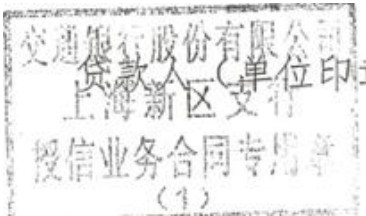 交通银行股份有限公司
贷款人（单位印
上海新区支行
授信业务合同专用章
（1）